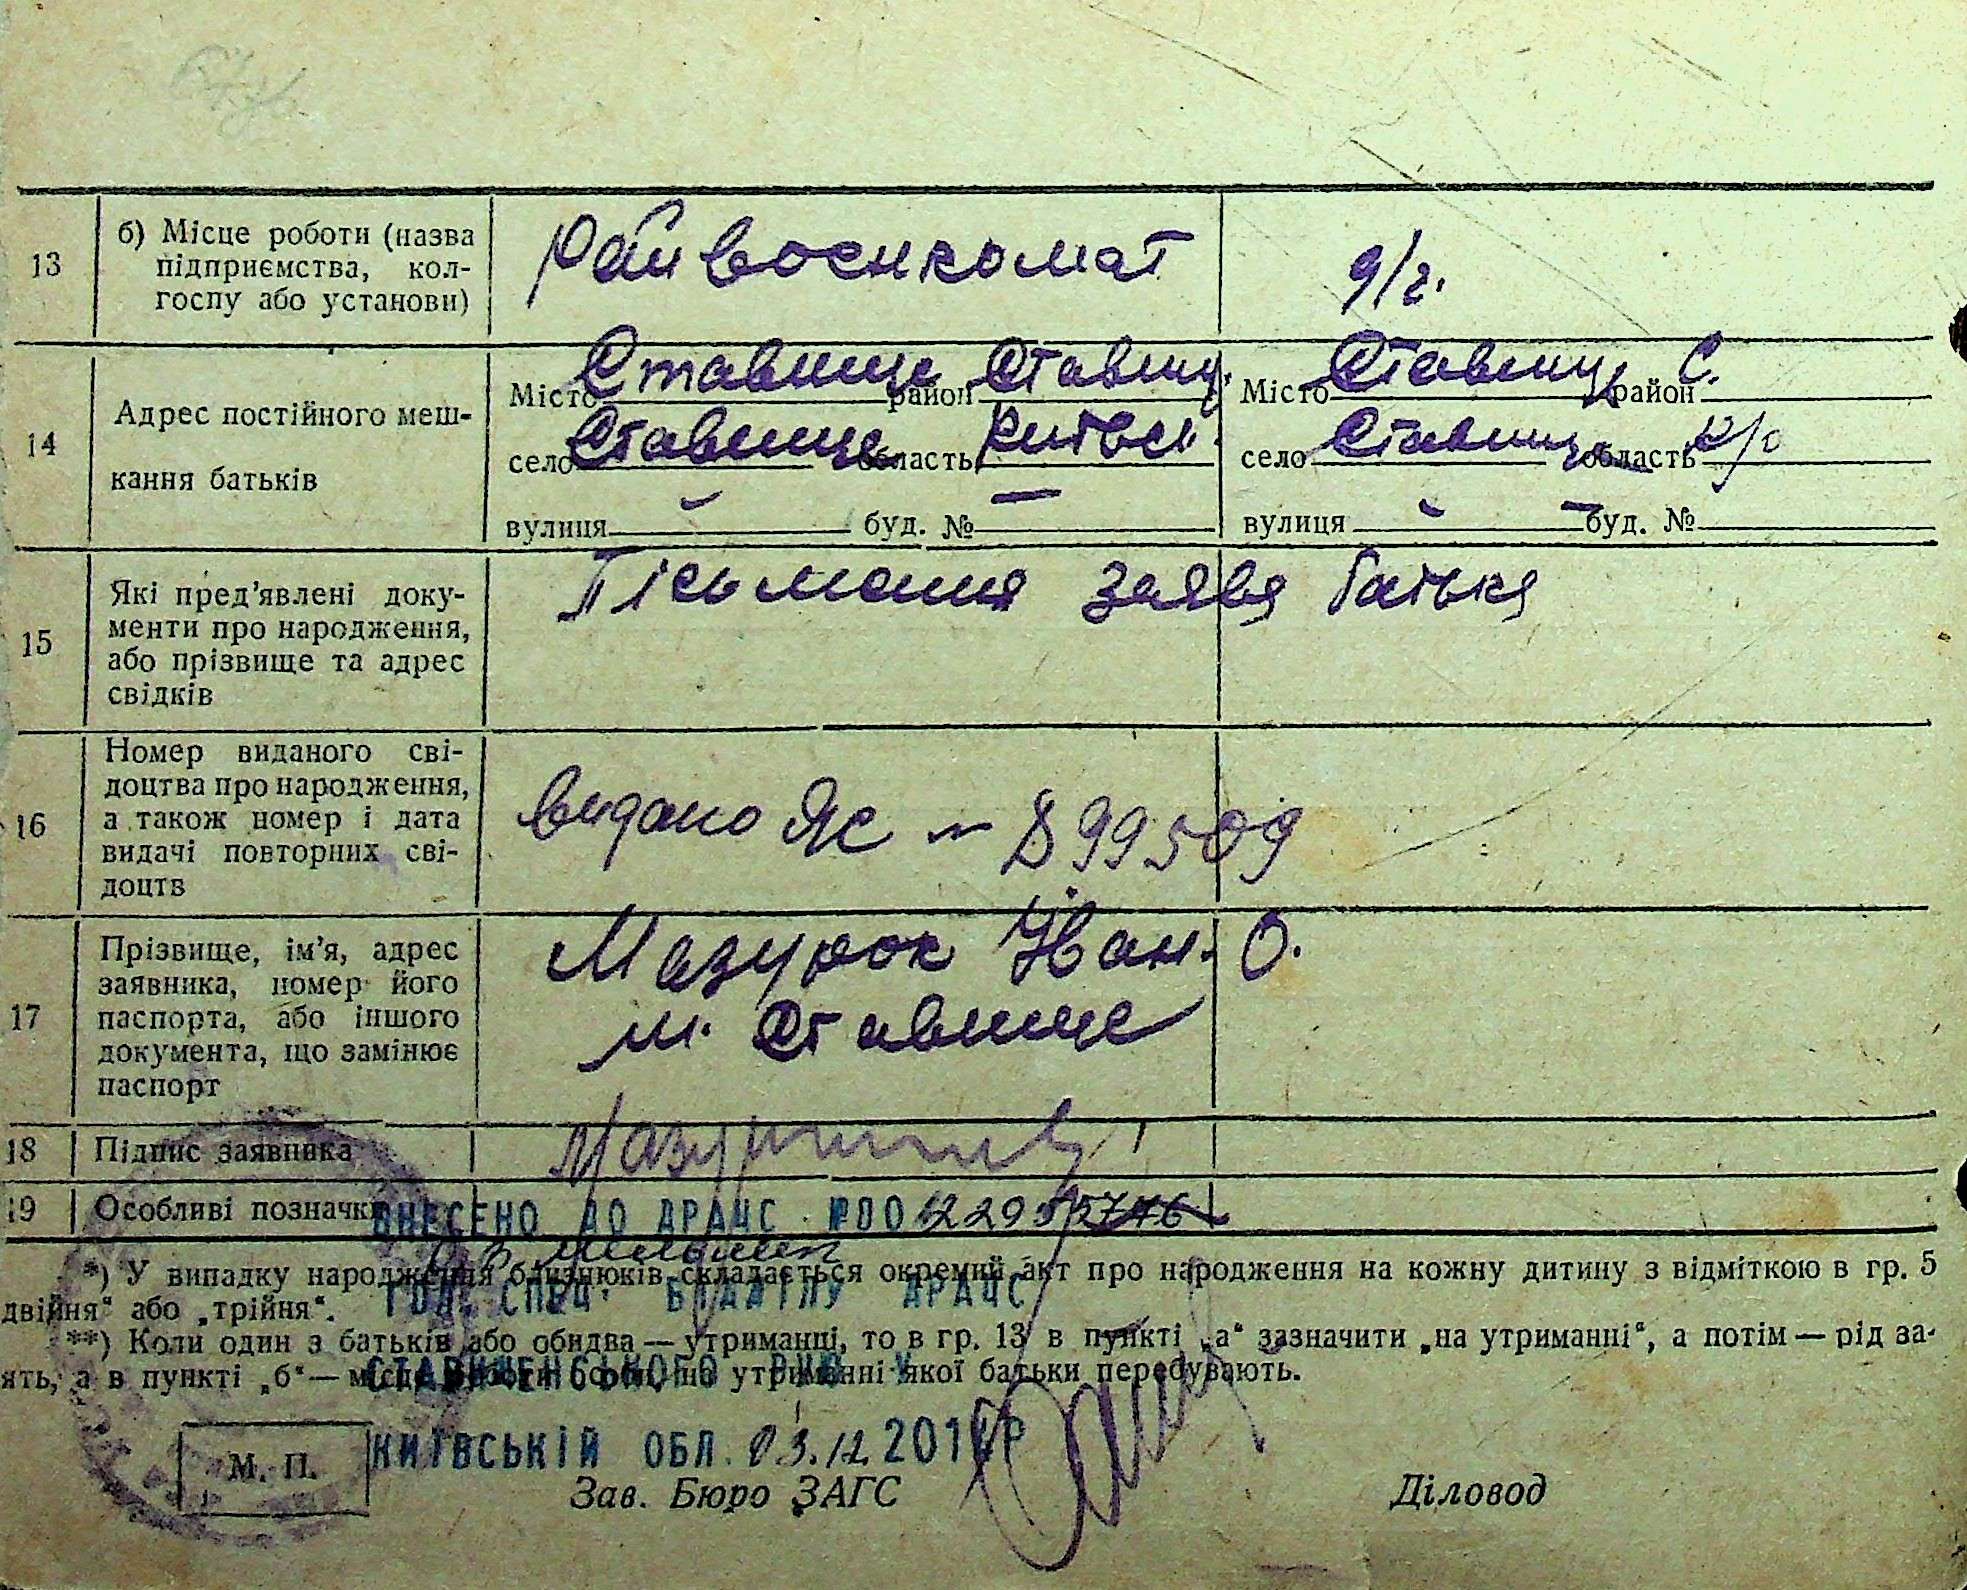 13
б) Місце роботи (назва
підприємства, кол-
госпу або установи)
Райвоєнкомат
д/г.
14
Адрес постійного меш-
кання батьків
Місто Ставище район Ставищ.
село Ставище область Київськ.
вулиця — буд. № —
Місто Ставищ район С.
село Ставищ область К/о
вулиця — буд. № —
15
Які пред'явлені доку-
менти про народження,
або прізвище та адрес
свідків
Пісьменна заява батька
16
Номер виданого сві-
доцтва про народження,
а також номер і дата
видачі повторних сві-
доцтв
видано ЯС № 899509
17
Прізвище, ім'я, адрес
заявника, номер його
паспорта, або іншого
документа, що замінює
паспорт
Мазурок Іван. О.
м. Ставище
18
Підпис заявника
19
Особливі позначки
ВНЕСЕНО ДО ДРАЦС №00
*) У випадку народження близнюків складається окремий акт про народження на кожну дитину з відміткою в гр. 5
двійня" або „трійня".
ГОЛ. СПЕЦ. ВІДДІЛУ ДРАЦС
**) Коли один з батьків або обидва — утриманці, то в гр. 13 в пункті „а" зазначити „на утриманні", а потім — рід за-
ять, а в пункті „б" — місце роботи особи, на утриманні якої батьки перебувають.
СТАВИЩЕНСЬКОГО РУЮ У
КИЇВСЬКІЙ ОБЛ. 03.12.201 Р
М. П.
Зав. Бюро ЗАГС
Діловод